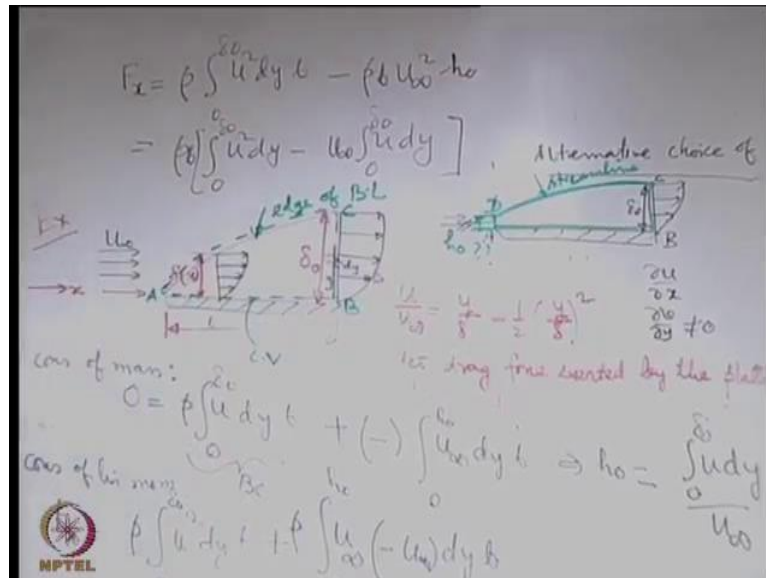 Fx = ρ ∫₀^δ₀ u² dy b − ρb u∞² h₀
= ρb [∫₀^δ₀ u² dy − u∞ ∫₀^δ₀ u dy]
Alternative choice of
Streamline
edge of B.L
C
C
Ex
u∞
δ(x)
δ₀
dy
y
D
δ₀
h₀ ??
A
B
x
A
B
C.V
u/u∞ = y/δ − 1/2 (y/δ)²
∂u/∂x
∂v/∂y ≠ 0
drag force exerted by the plate
cons of mass:
0 = ρ ∫₀^δ₀ u dy b + (−) ∫₀^h₀ u∞ dy b ⇒ h₀ = ∫₀^δ₀ u dy / u∞
BC
cons of lin mom
ρ ∫ u² dy b + ρ ∫^h₀ u∞ (−u∞) dy b
NPTEL